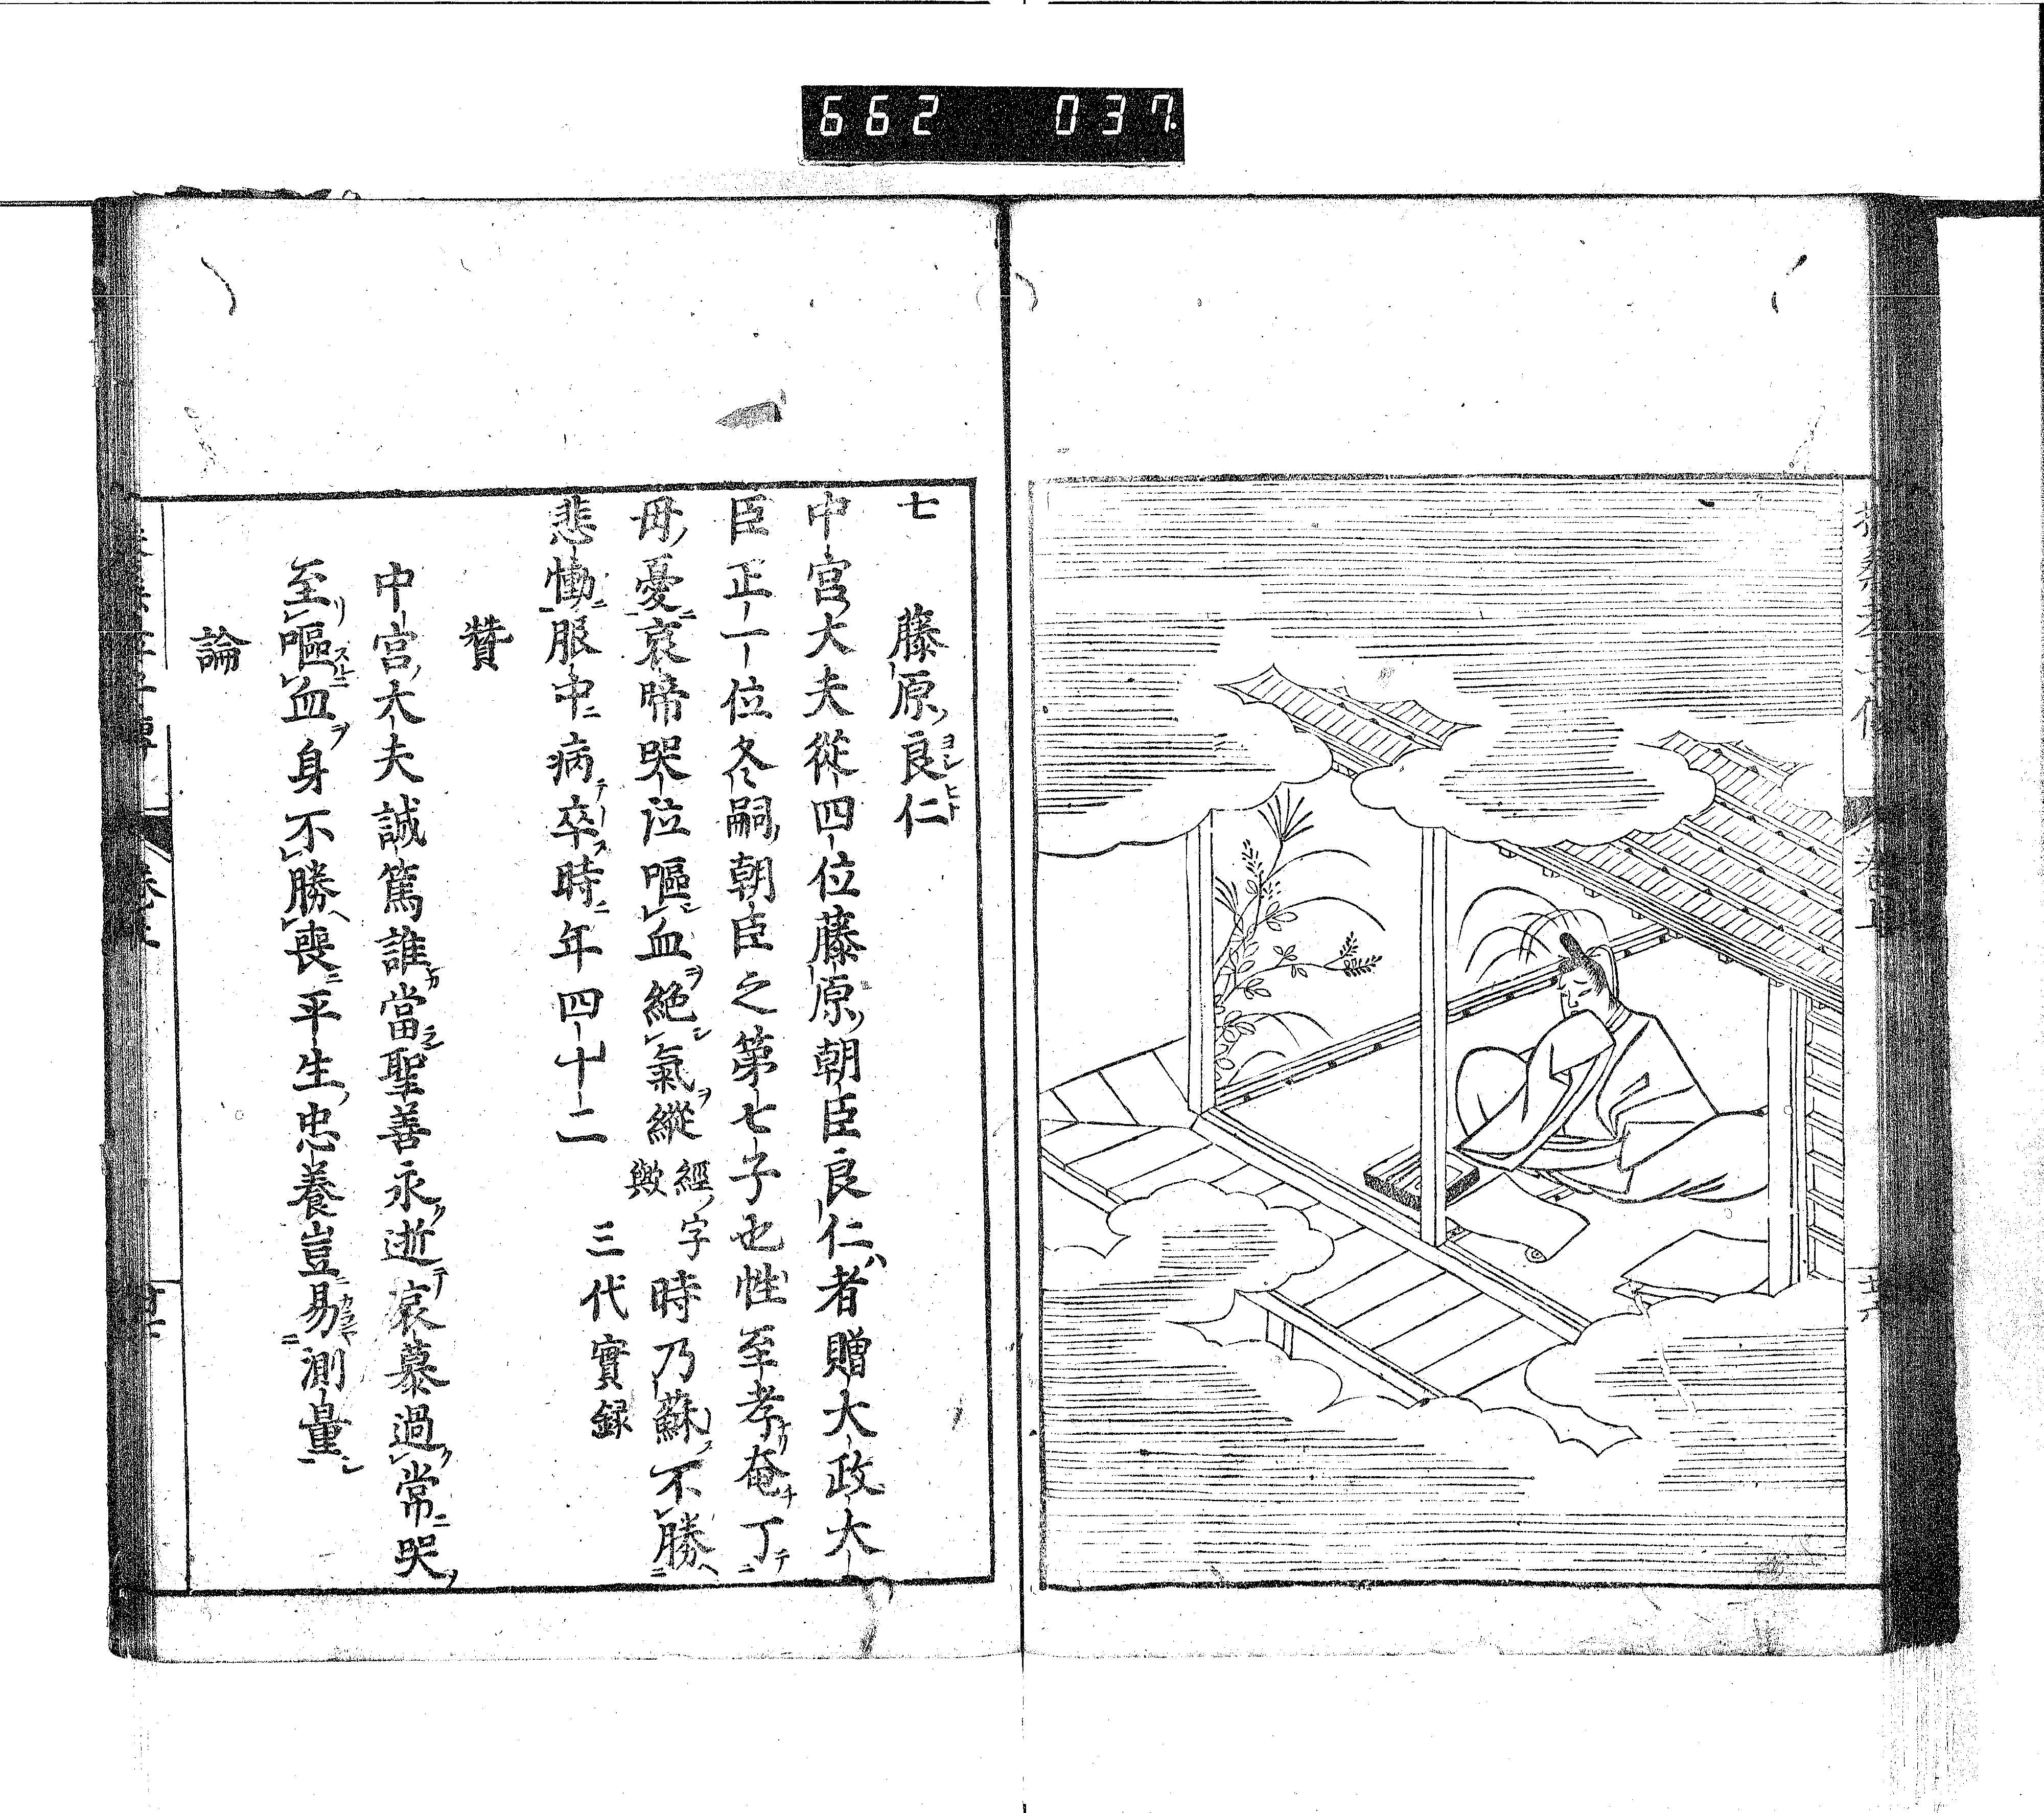 662 037
七 藤原良仁
中宮大夫從四位藤原朝臣良仁者贈大政大
臣正一位冬嗣朝臣之第七子也性至孝奄丁
母憂哀啼哭泣嘔血絶氣縱經字歟時乃蘇不勝
悲慟服中病卒時年四十二 三代實録
贊
中宮大夫誠篤誰當聖善永逝哀慕過常哭
至嘔血身不勝喪平生忠養豈易測量
論